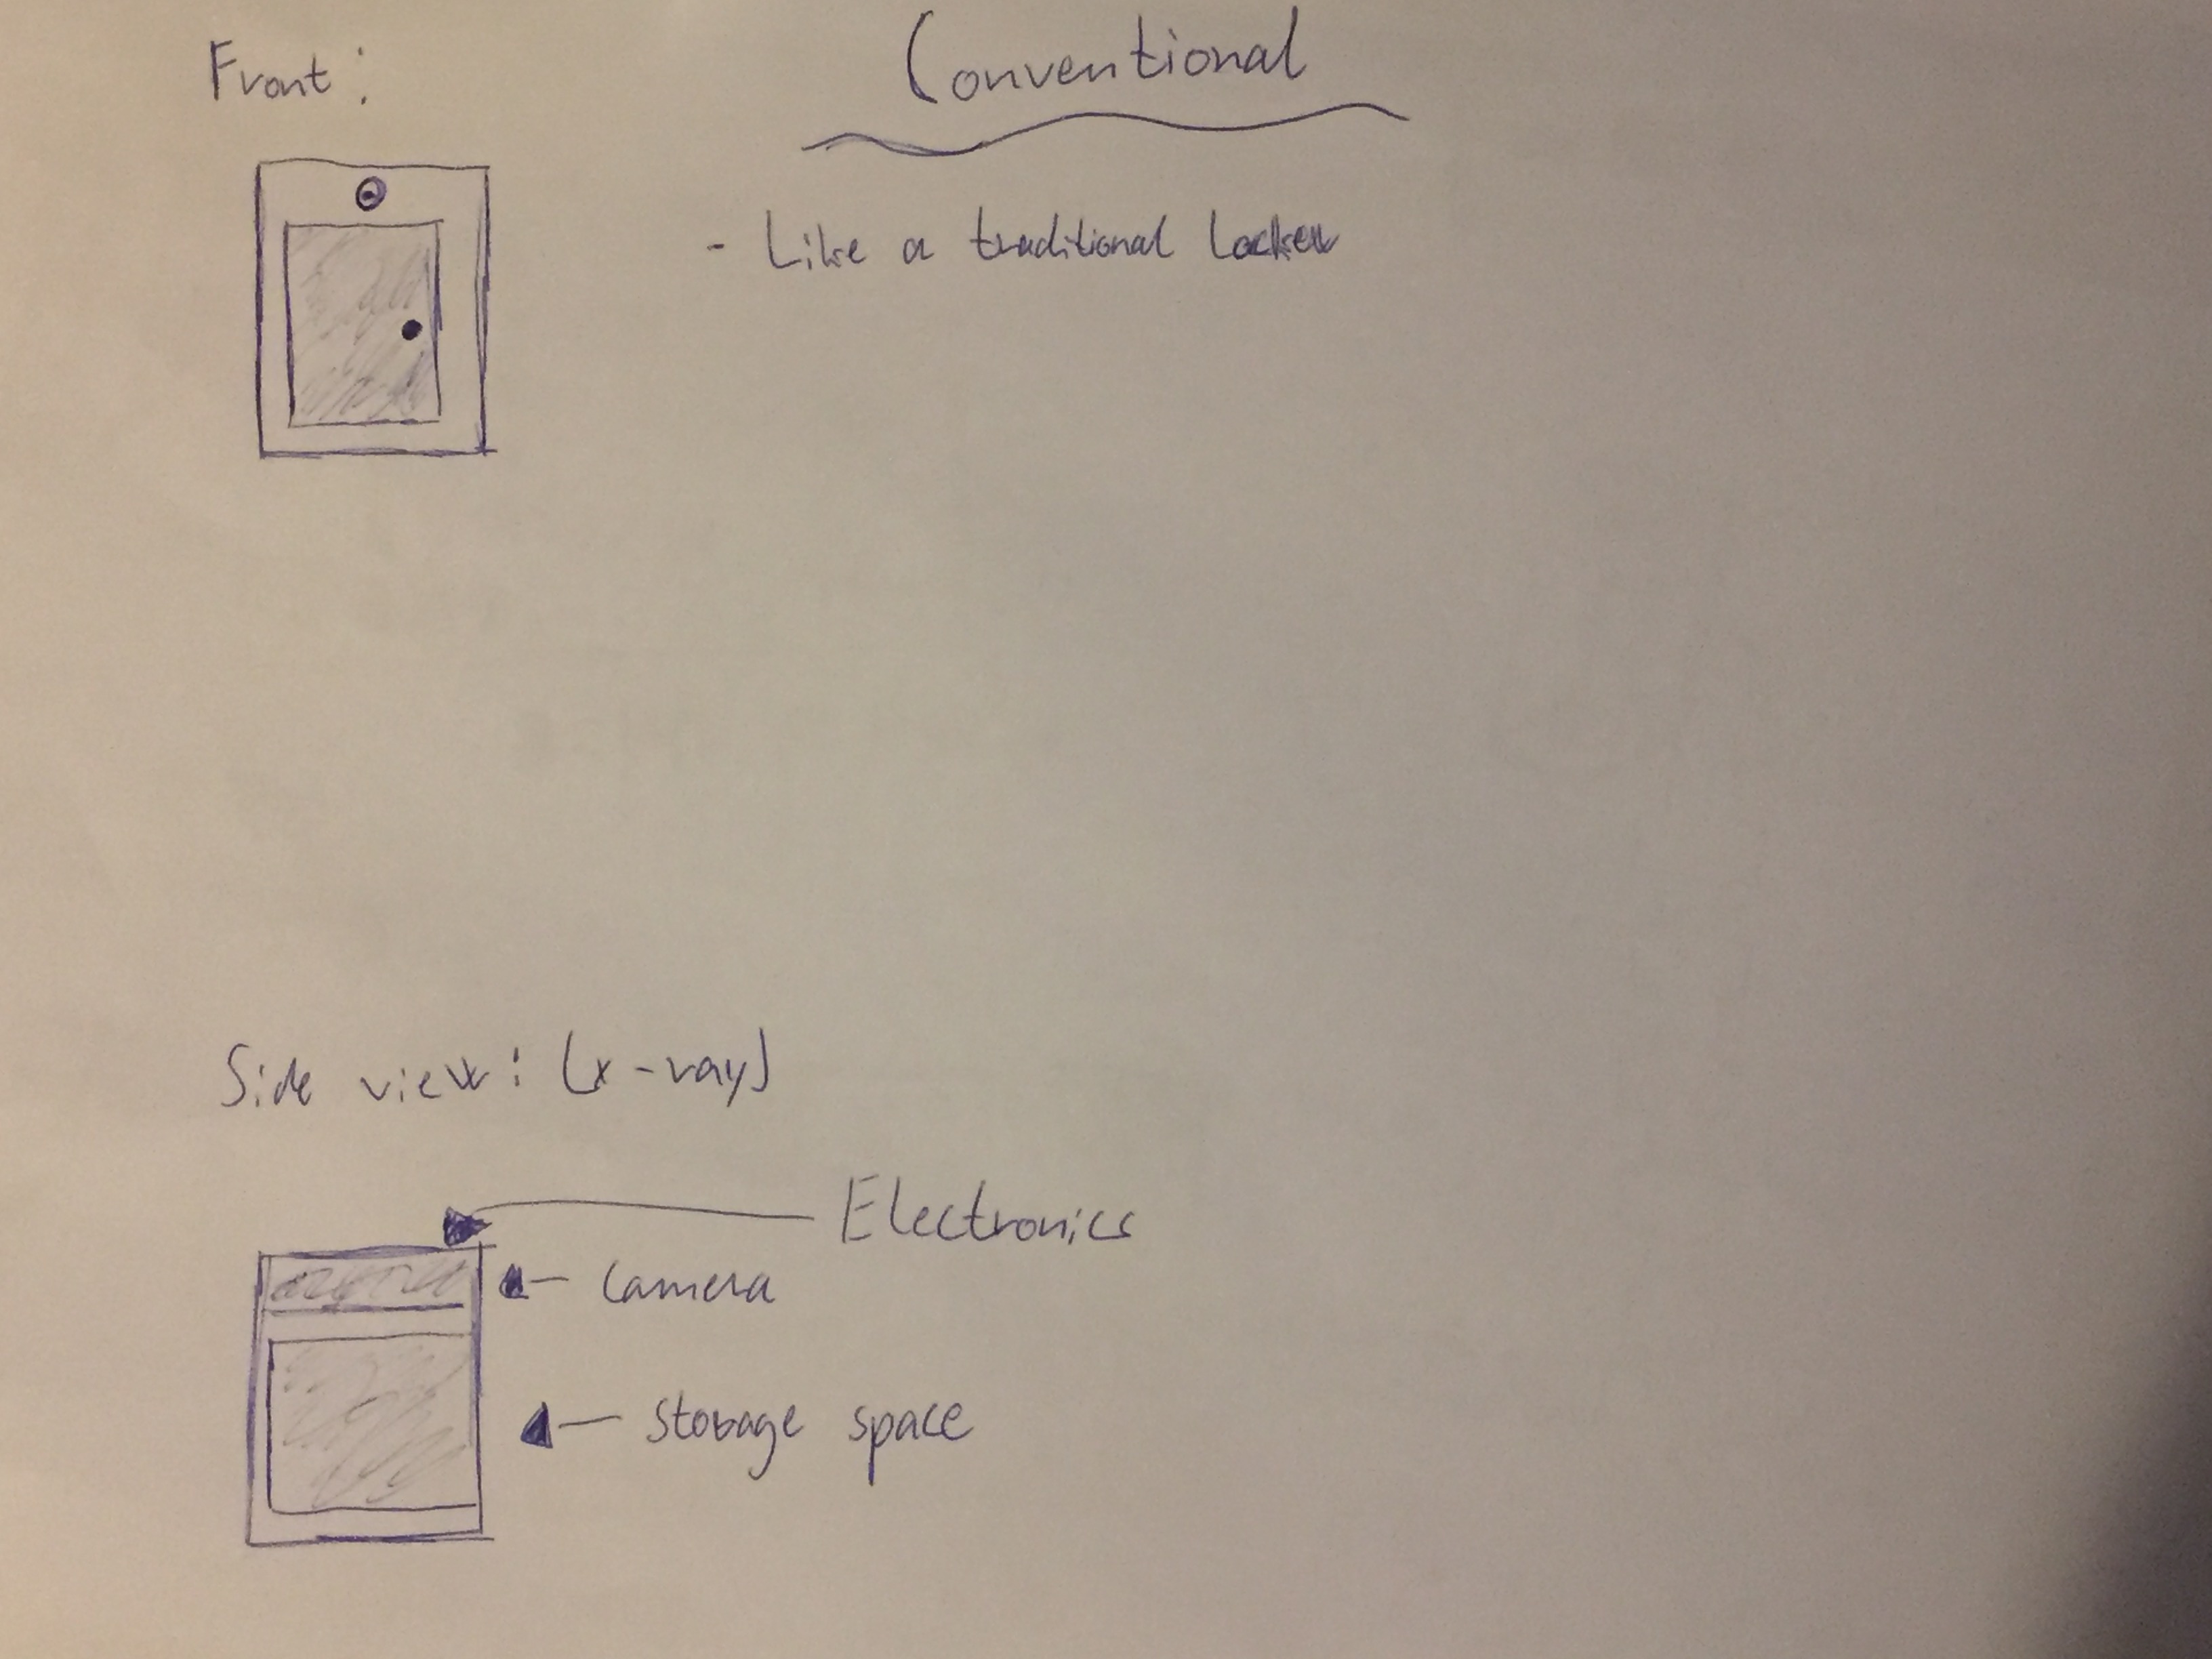 Front:
Conventional
- Like a traditional locker
Side view: (x-ray)
Electronics
Camera
Storage space